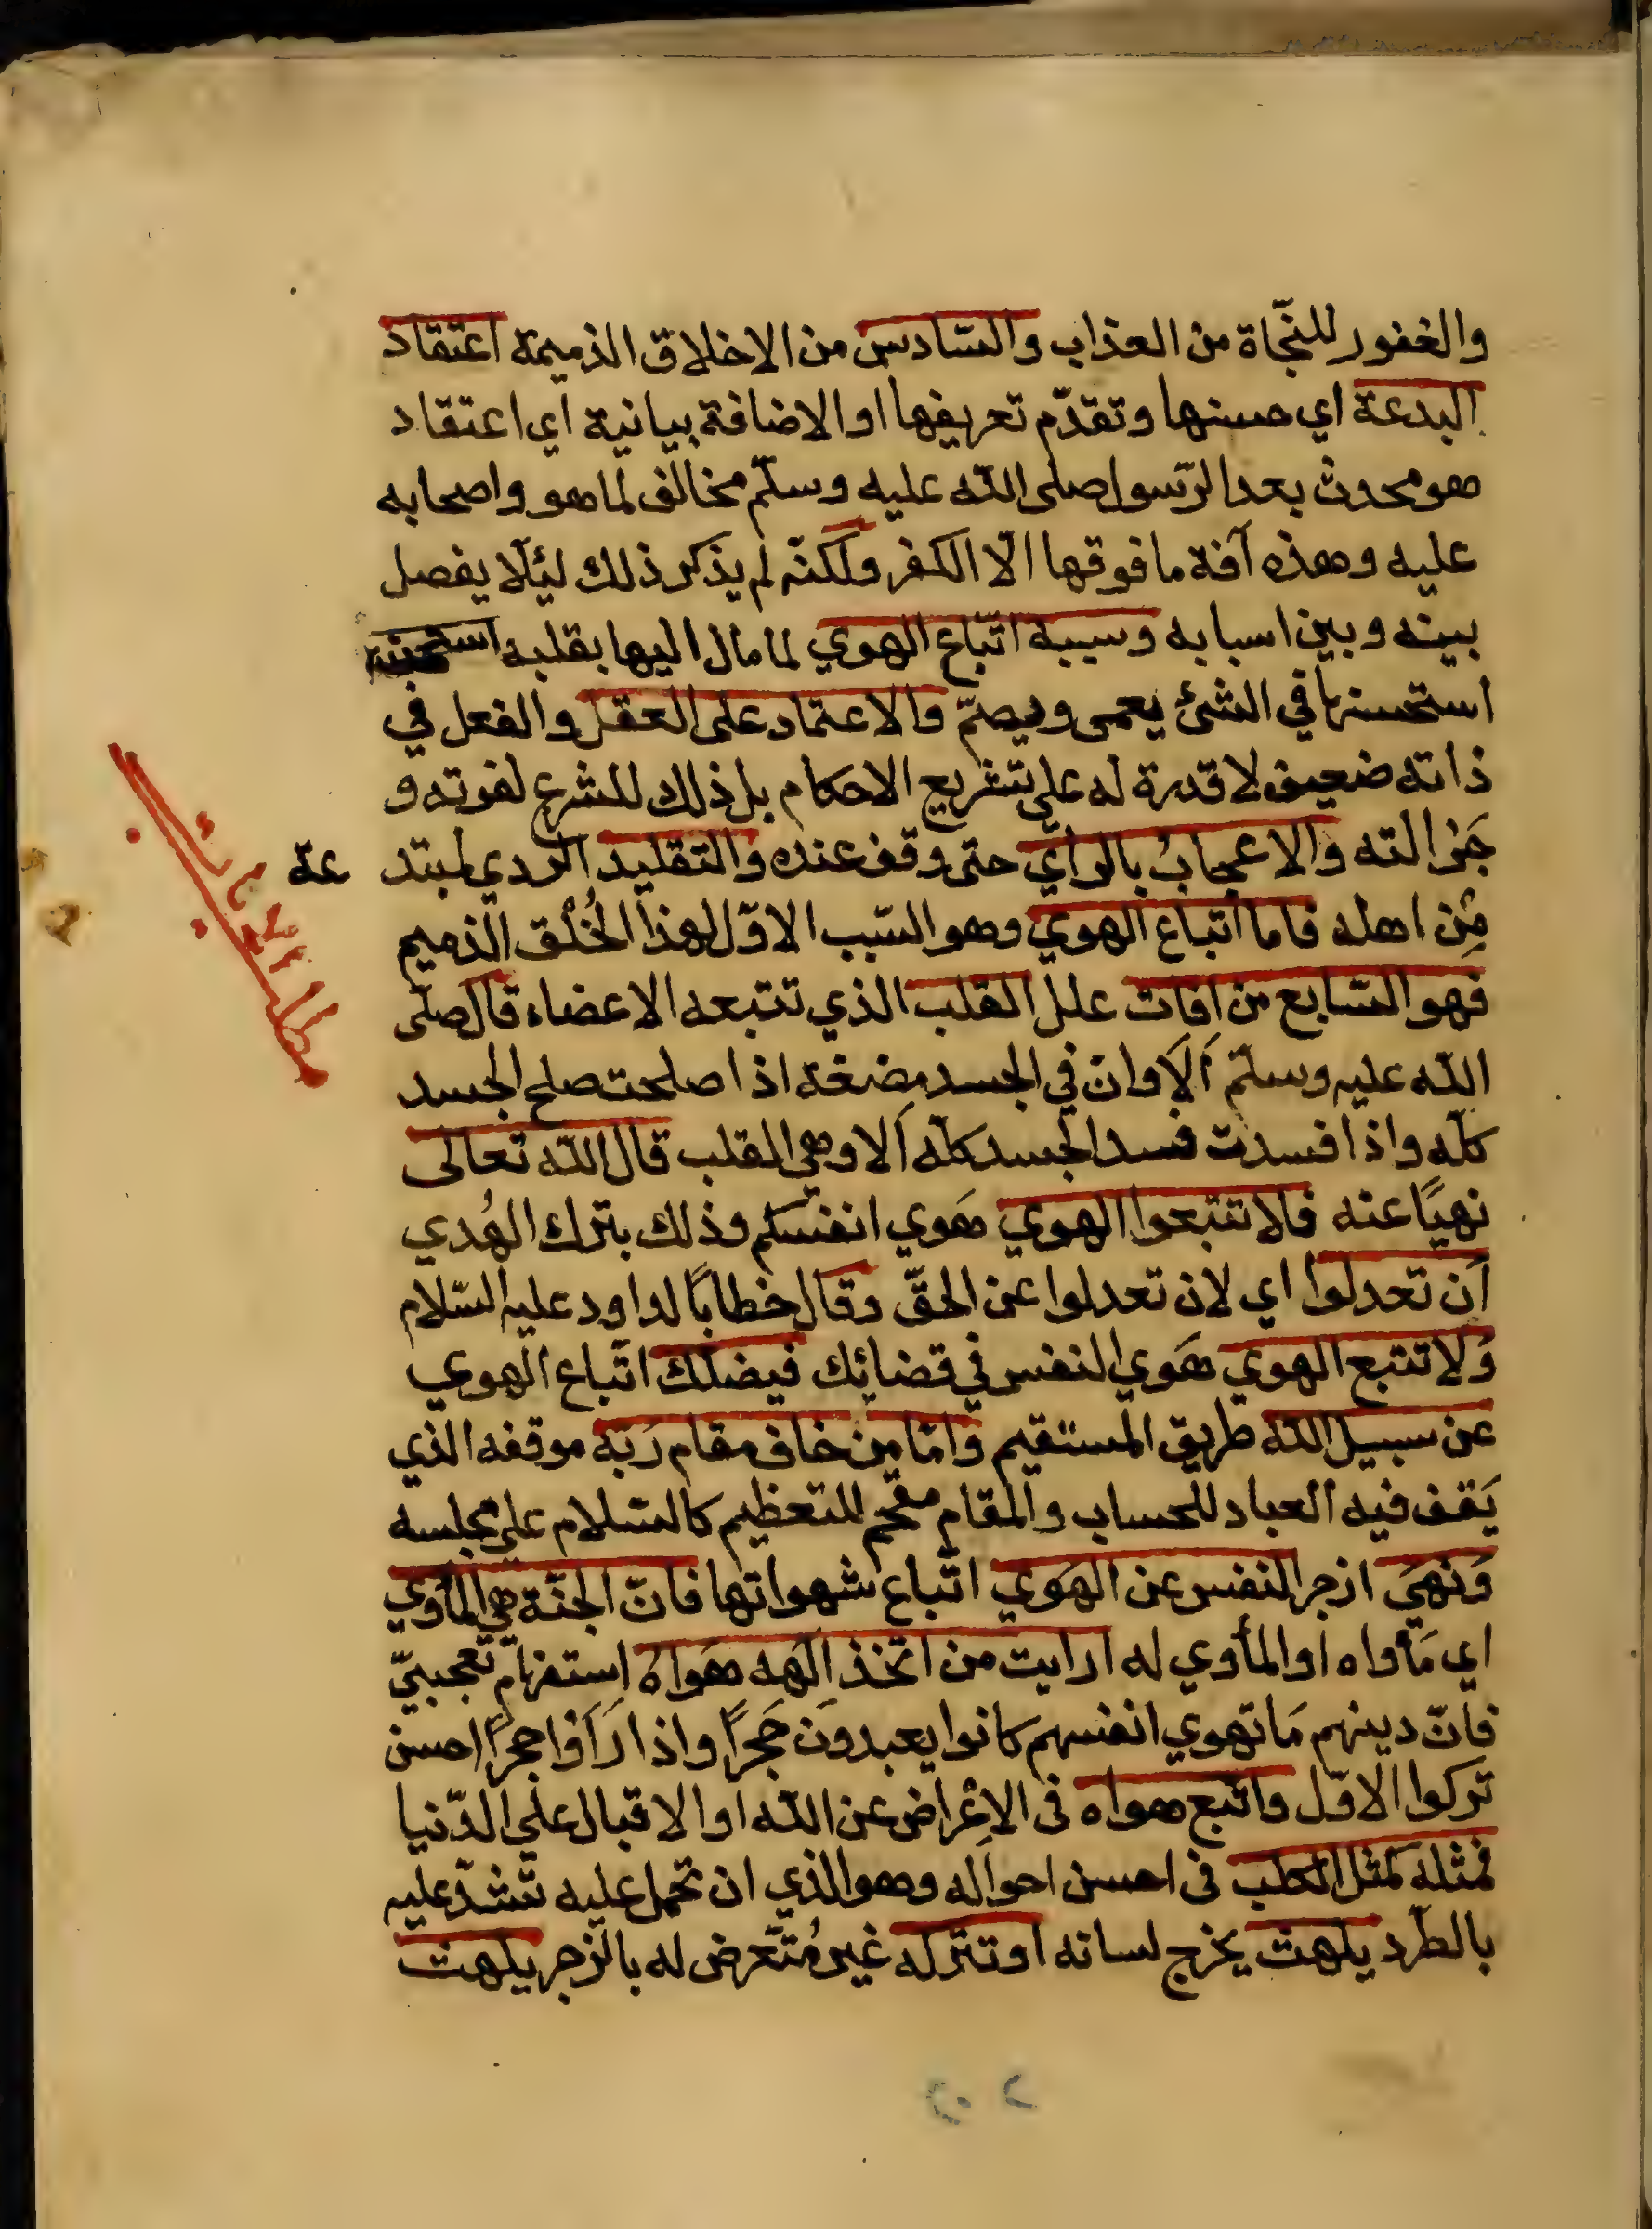 والغفور للنجّاة من العذاب والسّادس من الاخلاق الذميمة اعتقاد
البدعة اي حسنها وتقدّم تعريفها او الاضافة بيانية اي اعتقاد
هو محدث بعد الرّسول صلى اللّه عليه وسلّم مخالف لما هو واصحابه
عليه وهذه آفة ما فوقها الّا الكفر ولكنّه لم يذكر ذلك ليئلّا يفصل
بينه وبين اسبابه وسببه اتّباع الهوي لما مال اليها بقلبه
استحسنها في الشئ يعمى ويصمّ والاعتماد على العقل والفعل في
ذاته ضعيف لا قدرة له على تشريع الاحكام بل ذلك للشرع لقوته و
جَزالته والاعجابُ بالرأي حتى وقف عنده والتقليد الردي لمبتد عة
مِن اهله فاما اتباع الهوي وهو السّبب الاوّل لهذا الخُلْق الذميم
فهو السّابع من افات علل القلب الذي تتبعه الاعضاء قال صلّى
اللّه عليه وسلّم اَلَا وانّ في الجسد مضغة اذا صلحت صلح الجسد
كلّه واذا فسدت فسد الجسد كلّه اَلا وهي القلب قال اللّه تعالى
نهيًا عنه فلا تتبعوا الهوي هَوي انفسكم وذلك بترك الهُدي
اَن تعدلوا اي لان تعدلوا عن الحقّ وقال خطابًا لداود عليه السّلام
وَلا تتبع الهوي هَوي النفس في قضائك فيضلّك اتّباع الهوي
عن سبيل اللّه طريق المستقيم وامّا من خاف مقام رَبّه موقفه الذي
يَقف فيه العباد للحساب والمقام مقحم للتعظيم كالسّلام على مجلسه
وَنهيَ ازجر النفس عن الهَوي اتّباع شهواتها فانّ الجنّة هي المأوي
اي مَأواه او المأوي له ارايت من اتخذ الٰهه هَواهُ استفهام تعجببيّ
فانّ دينهم مَا تهوي انفسهم كانوا يعبدونَ حَجرًا واذا رَاَوْا حجرًا احسن
تركوا الاوّل واتّبع هواه فى الاِعْراض عن اللّه او الاقبال علي الدّنيا
فمثله كمثل الكلب فى احسن احواله وهو الذي ان تحمل عليه تّشدّ عليه
بالطّرد يلهث يخرج لسانه او تتركه غير مُتّعرض له بالزجر يلهث